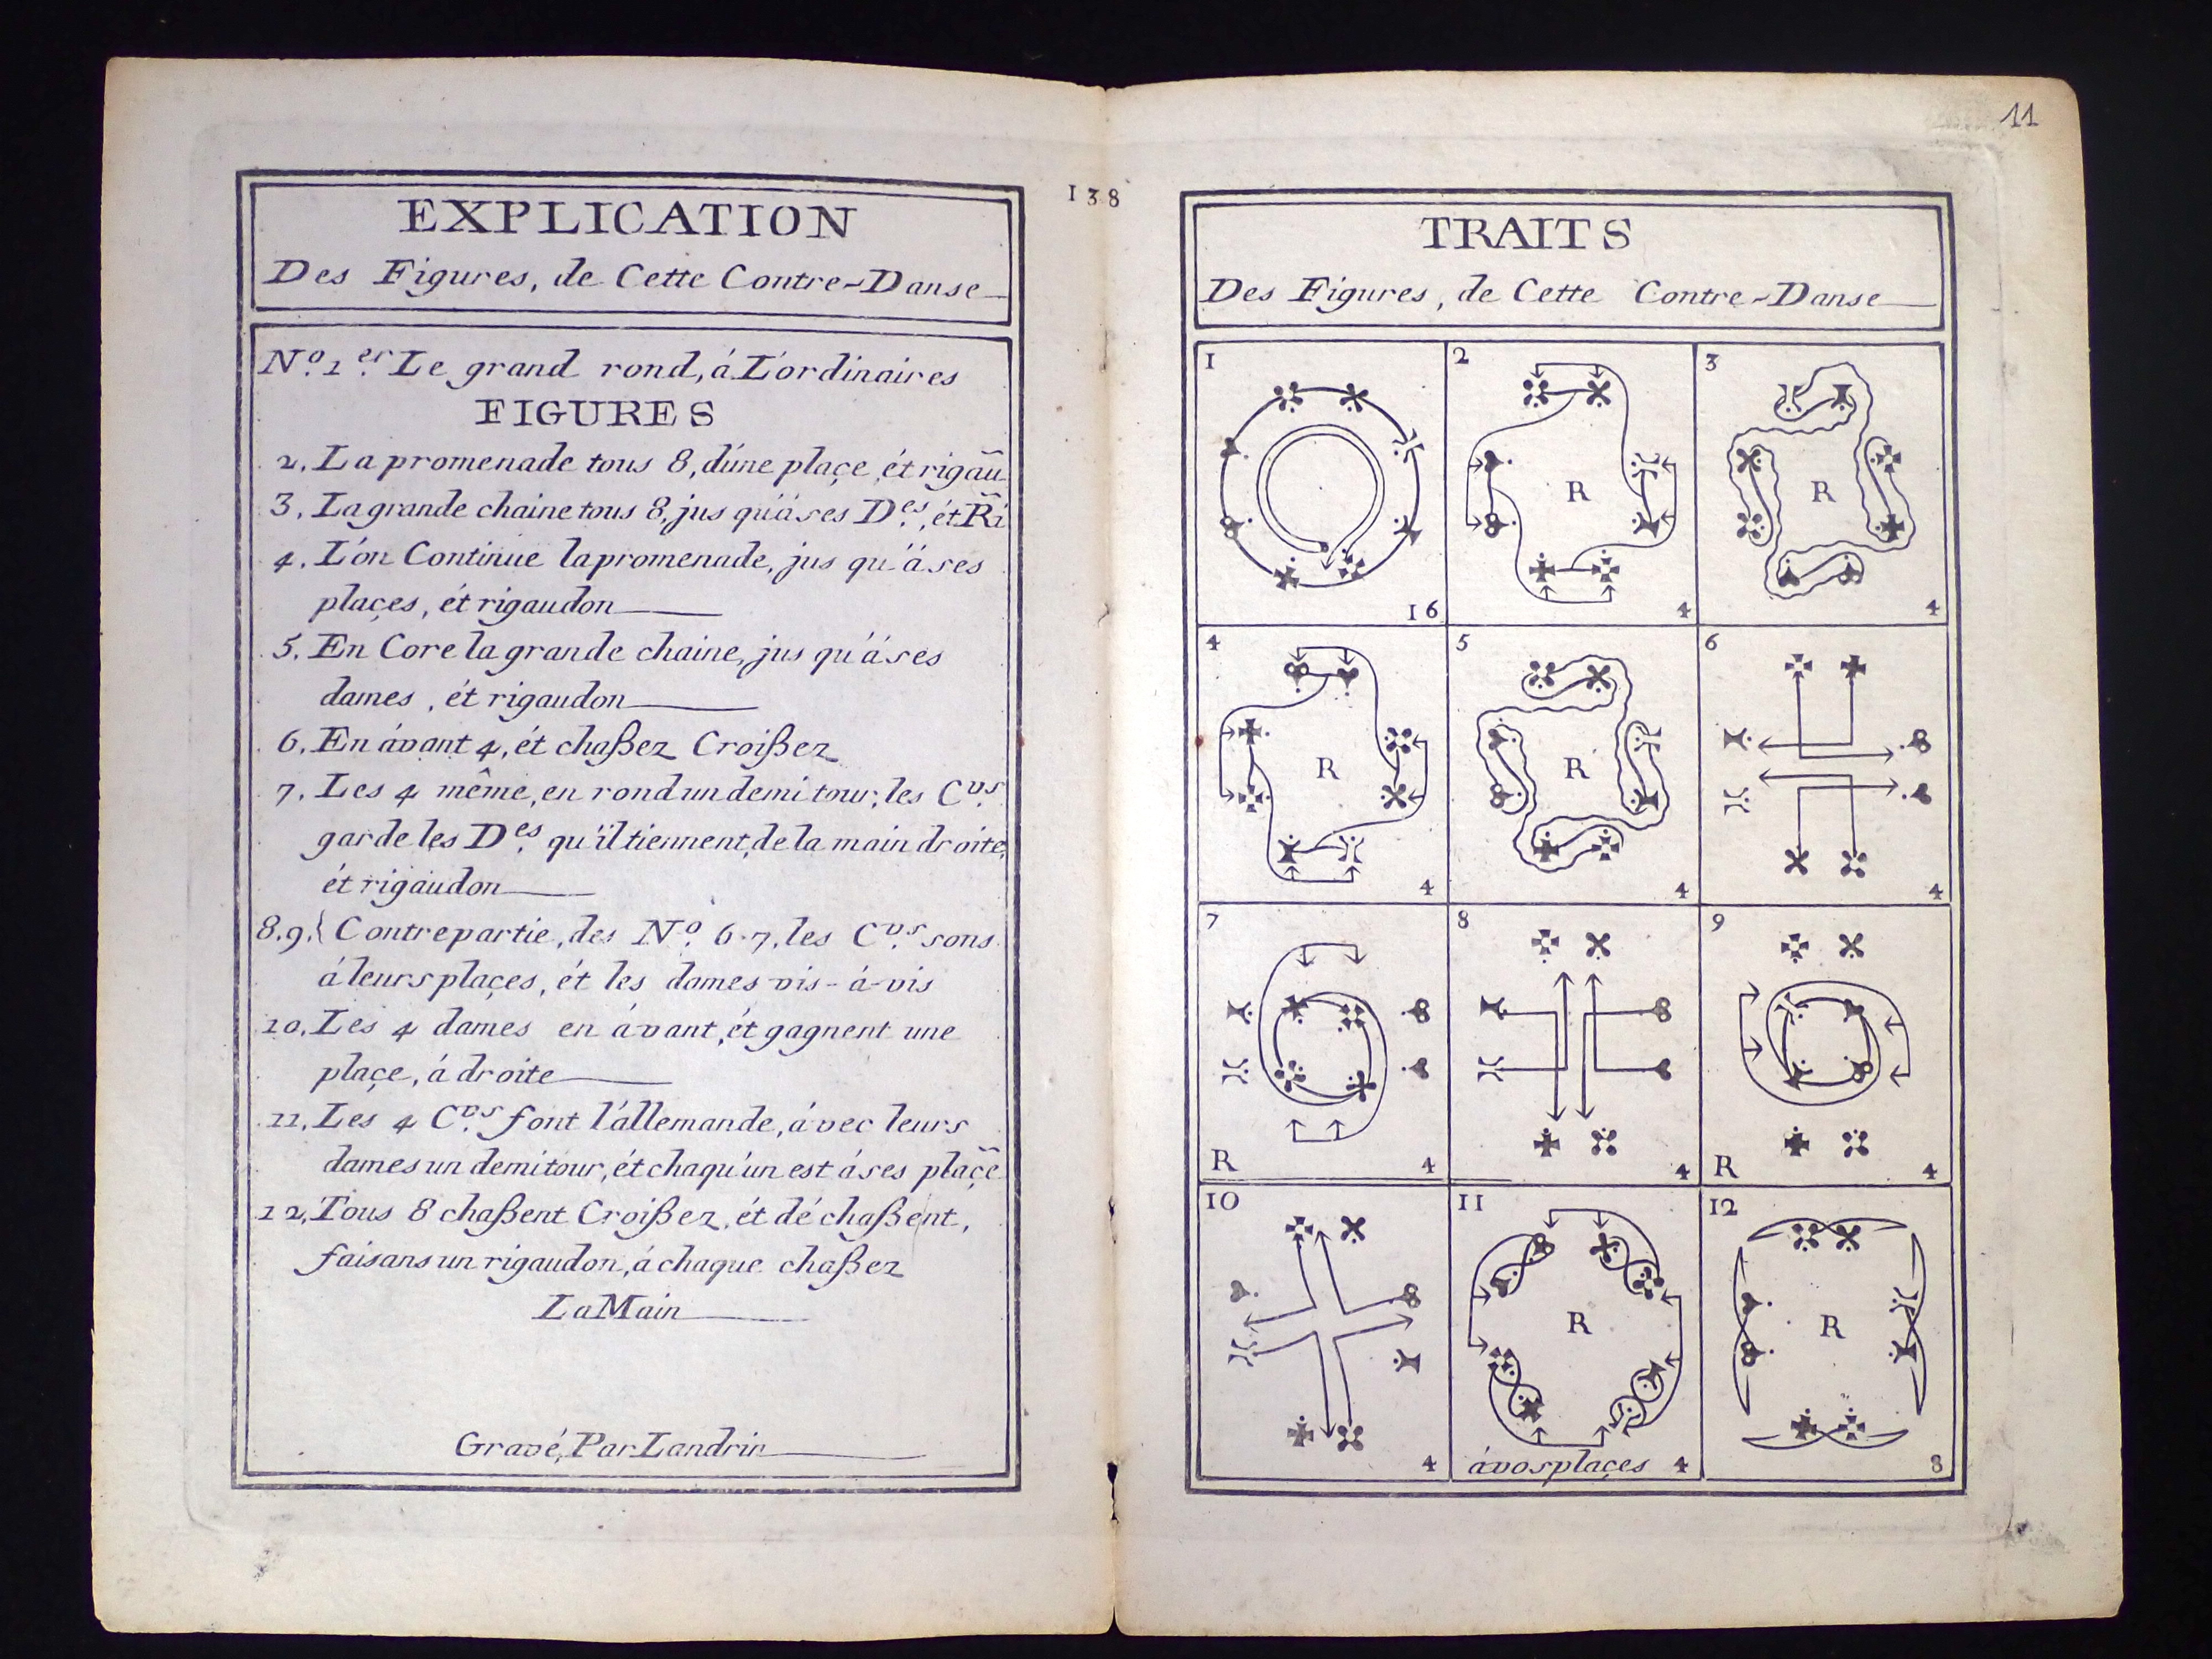 EXPLICATION
Des Figures, de Cette Contre-Danse
Nº. 1er. Le grand rond, á L'ordinaires
FIGURES
2. La promenade tous 8, d'úne plaçe, ét rigau̅
3. La grande chaine tous 8, jus qu'à ses Des. ét Ri̅
4. L'on Continue la promenade, jus qu'á ses
plaçes, ét rigaudon
5. En Core la grande chaine, jus qu'á ses
dames, ét rigaudon
6. En ávant 4, ét chaßez Croißez
7. Les 4 même, en rond un demi tour, les Cvrs.
garde les Des. qu'il tiennent, de la main droite,
ét rigaudon
8.9.{ Contrepartie, des Nº. 6.7, les Cvrs. sons
á leurs plaçes, ét les dames vis-á-vis
10. Les 4 dames en ávant, ét gagnent une
plaçe, á droite
11. Les 4 Cvrs. font l'állemande, ávec leurs
dames un demi tour, ét chaqu'un est á ses plaçe̅
12. Tous 8 chaßent Croißez, ét dé chaßent,
faisans un rigaudon, á chaque chaßez
La Main
Gravé, Par Landrin
138
11
TRAITS
Des Figures, de Cette Contre-Danse
1 2 3
R R
16 4 4
4 5 6
R R
4 4 4
7 8 9
R 4 4 R 4
10 11 12
R R
4 á vos plaçes 4 8